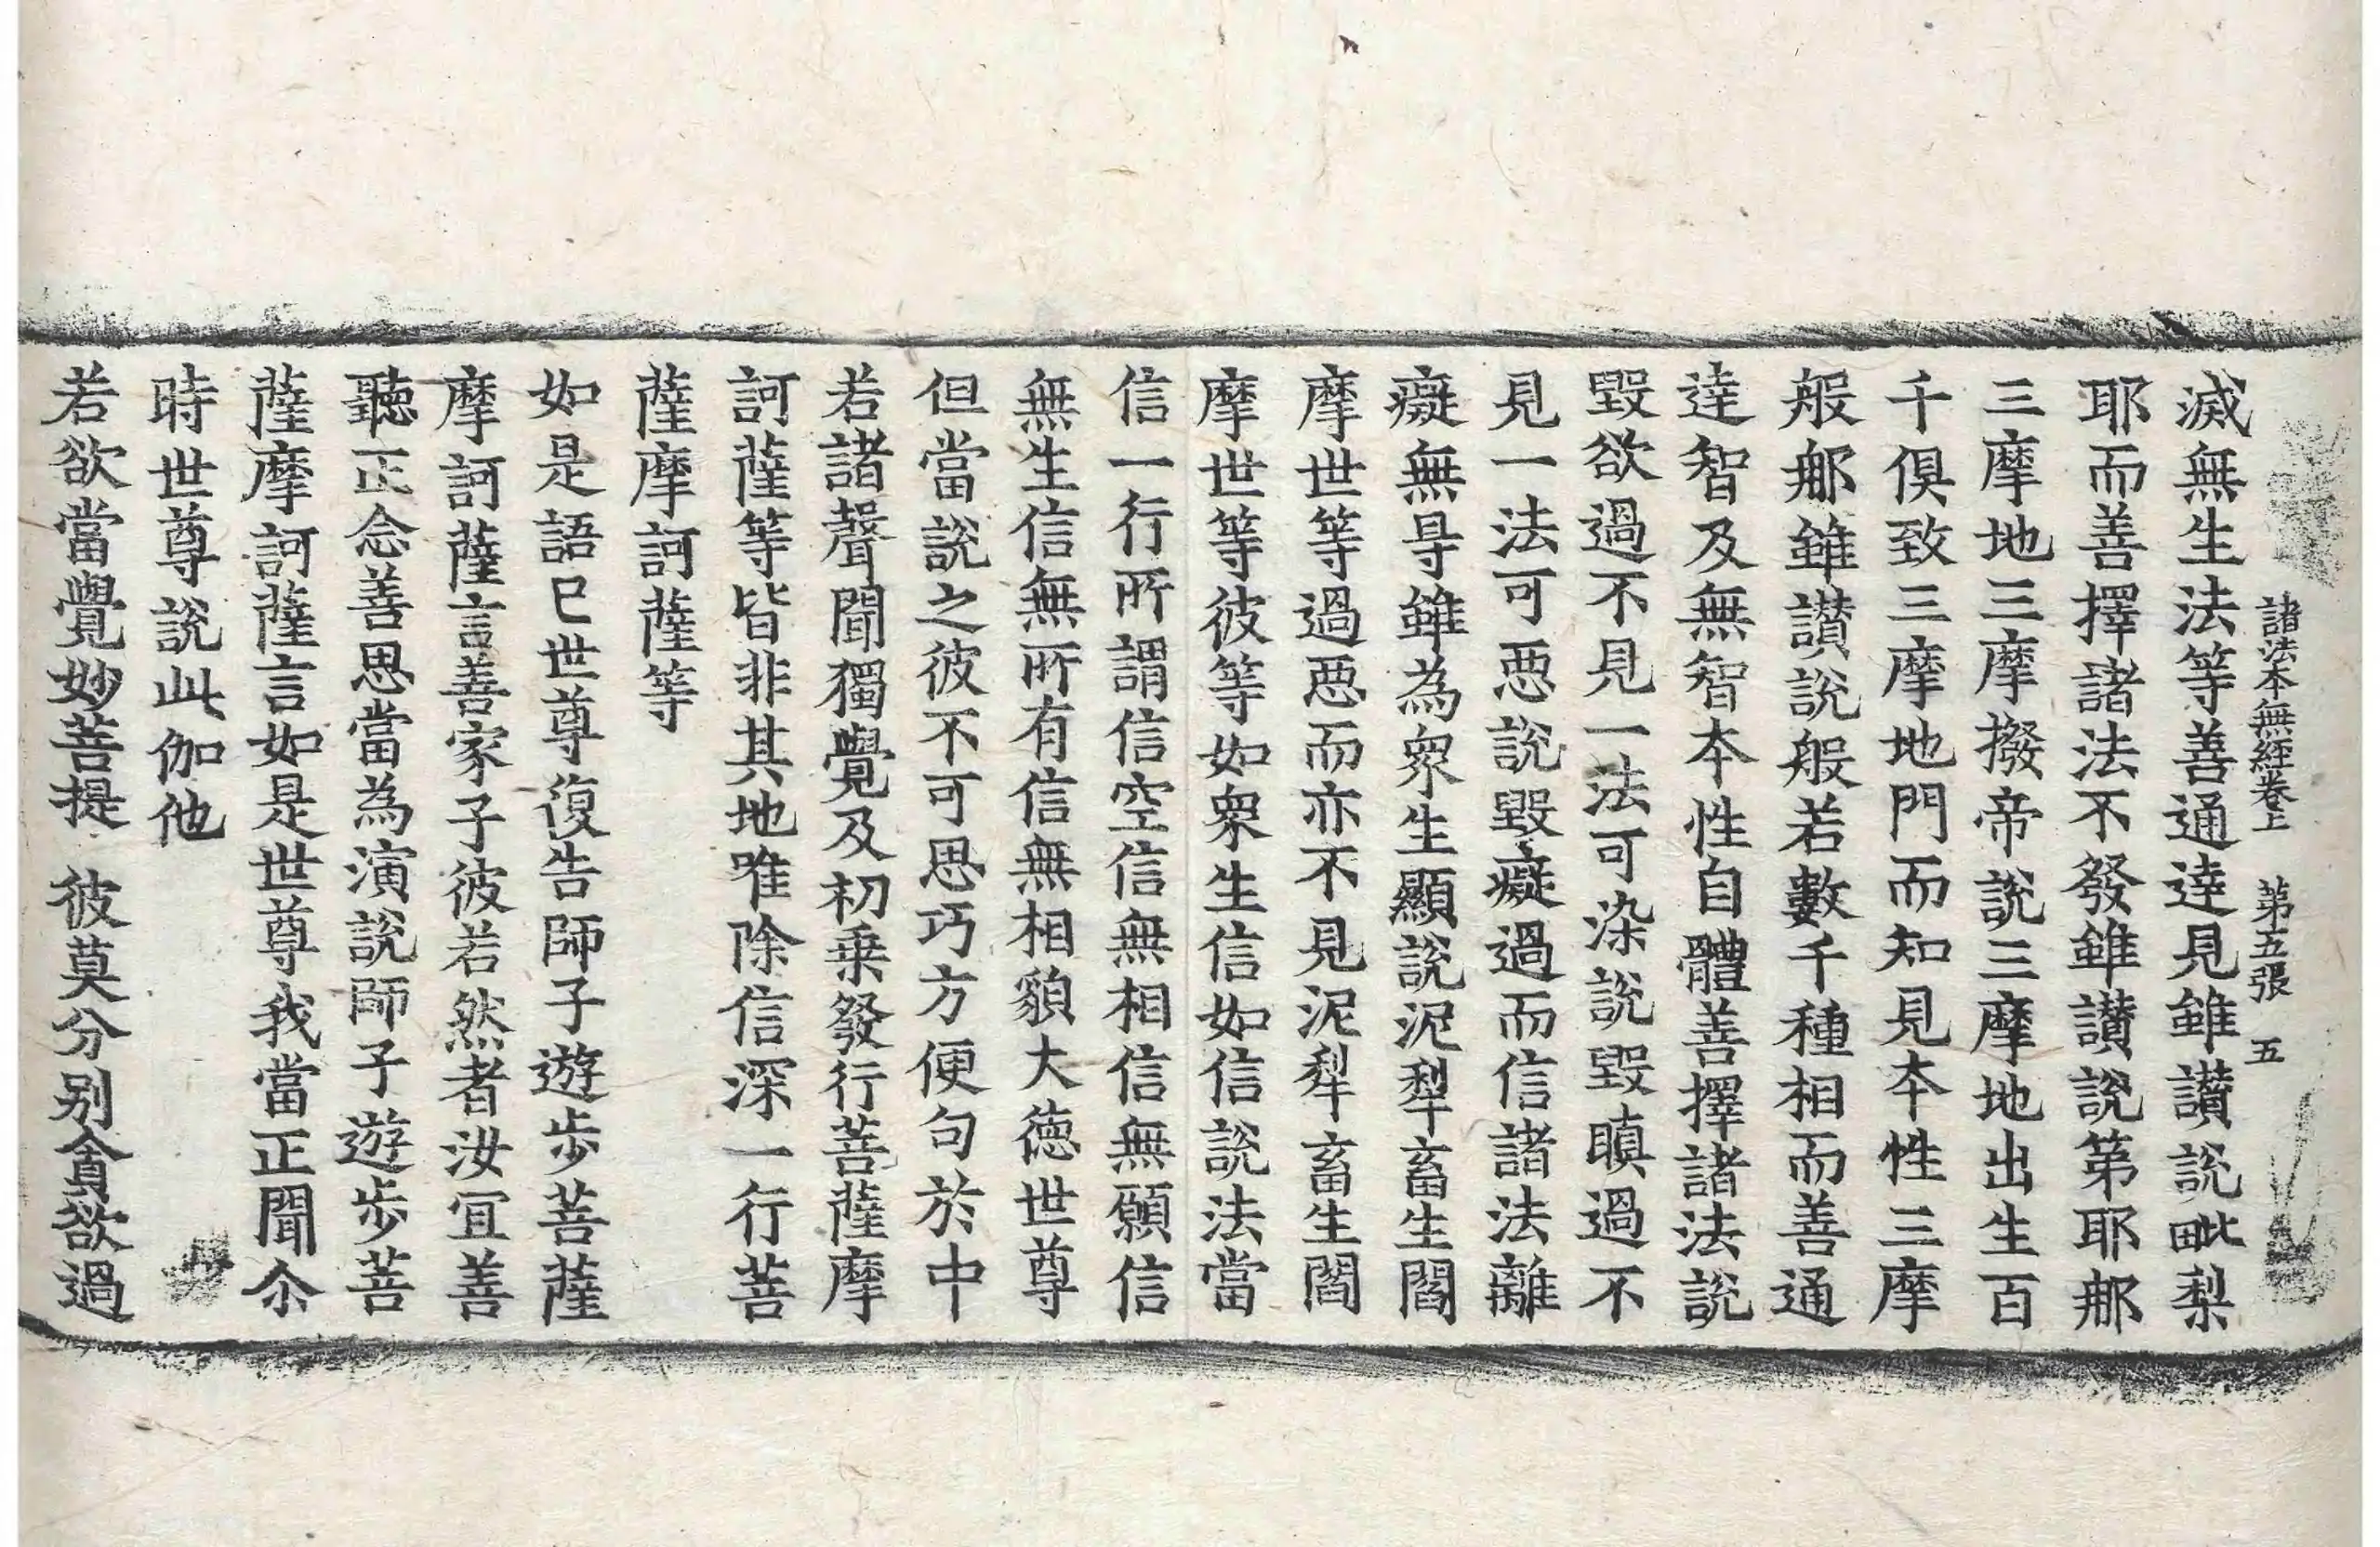 諸法本無經卷上　第五張　五
滅無生法等善通達見雖讃說毗梨
耶而善擇諸法不發雖讃說第耶那
三摩地三摩撥帝說三摩地出生百
千俱致三摩地門而知見本性三摩
般那雖讃說般若數千種相而善通
達智及無智本性自體善擇諸法說
毀欲過不見一法可染說毀瞋過不
見一法可惡說毀癡過而信諸法離
癡無㝵雖為眾生顯說泥犁畜生閻
摩世等過惡而亦不見泥犁畜生閻
摩世等彼等如眾生信如信說法當
信一行所謂信空信無相信無願信
無生信無所有信無相貌大德世尊
但當說之彼不可思巧方便句於中
若諸聲聞獨覺及初乘發行菩薩摩
訶薩等皆非其地唯除信深一行菩
薩摩訶薩等
如是語已世尊復告師子遊步菩薩
摩訶薩言善家子彼若然者汝宜善
聽正念善思當為演說師子遊步菩
薩摩訶薩言如是世尊我當正聞尒
時世尊說此伽他
若欲當覺妙菩提　彼莫分別貪欲過